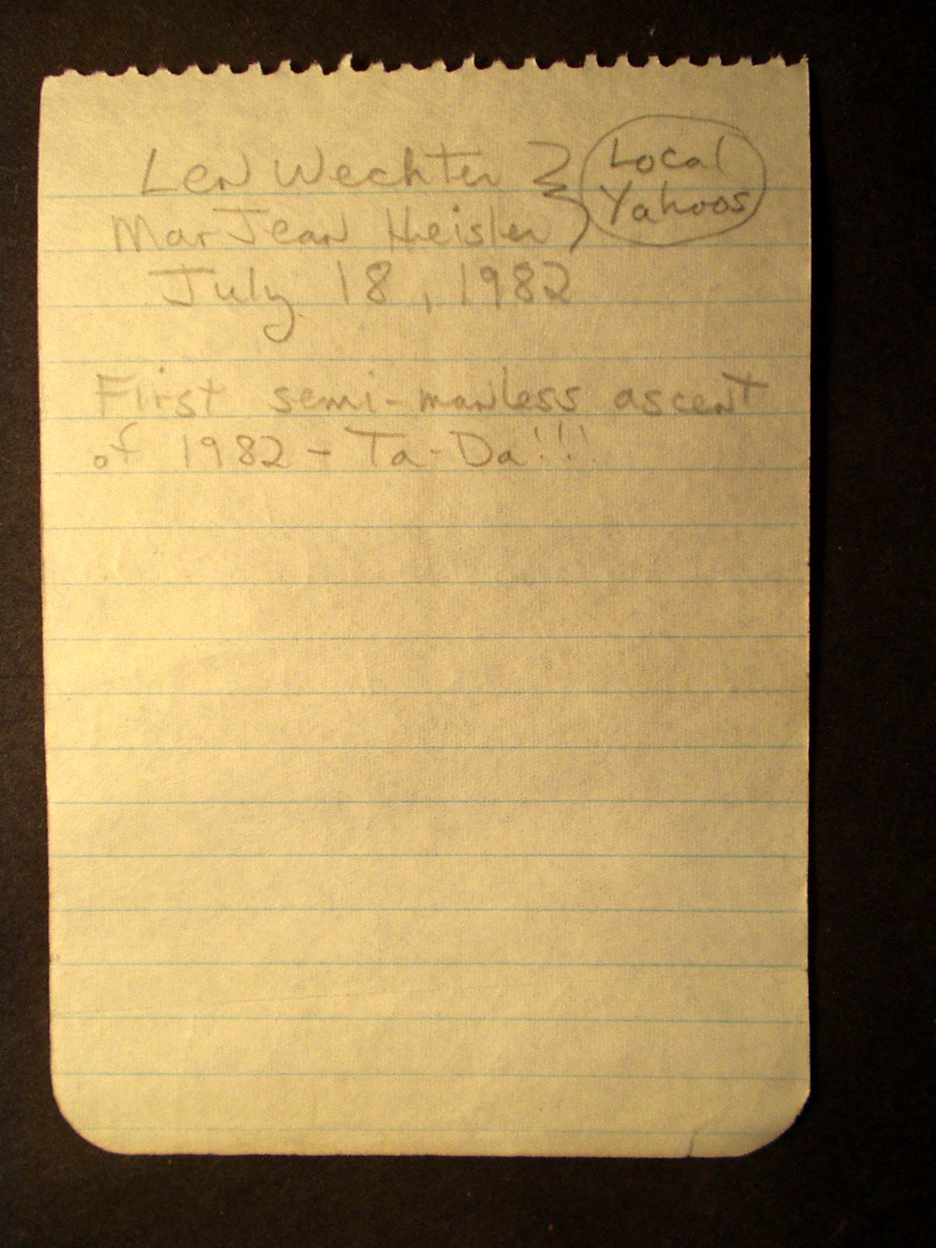 Len Wechter
MarJean Heisler
Local
Yahoos
July 18, 1982
First semi-manless ascent
of 1982 - Ta-Da!!!